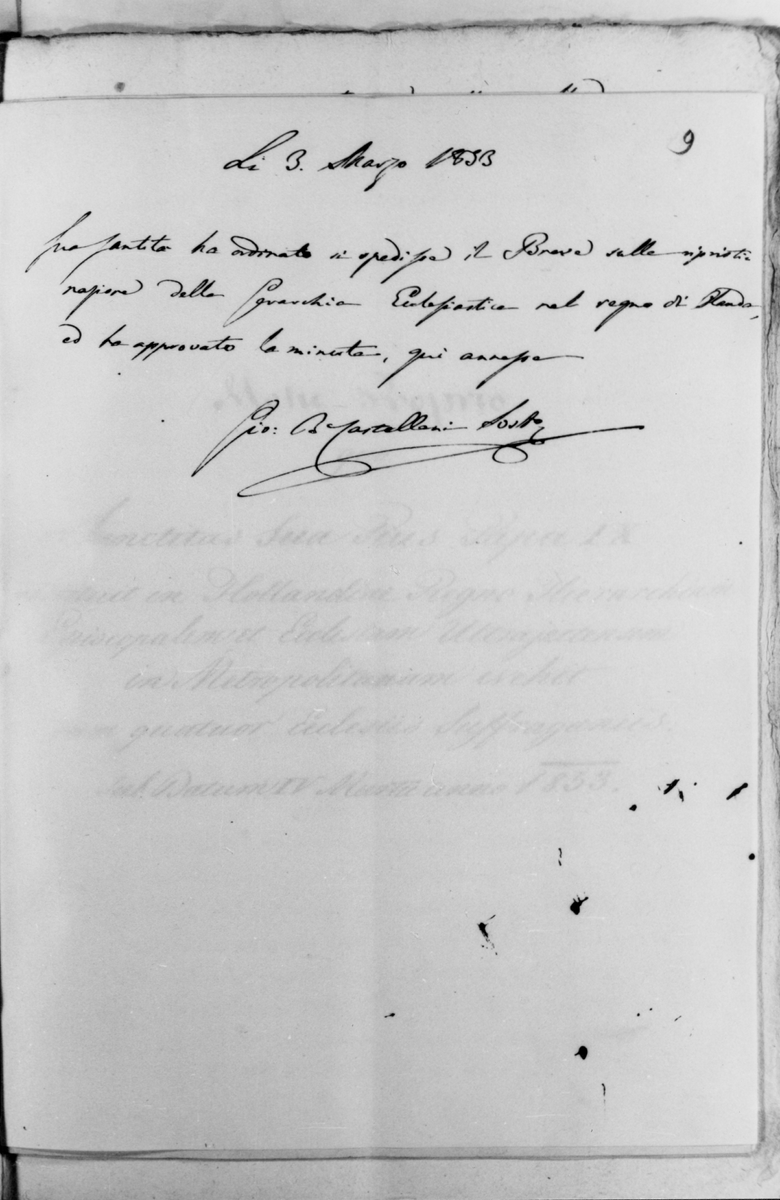 9
Li 3. Marzo 1853
Sua Santità ha ordinato si spedisse il Breve sulla ripristi-
nazione della Gerarchia Ecclesiastica nel regno di Olanda,
ed ha approvato la minuta, qui annessa
Gio: B Castellani Sosto
Sanctitas Sua Pius Papa IX
in Hollandiae Regno Hierarchiam
Episcopalem et Eclesiam Ultrajectensem
in Metropolitanam evehit
quatuor Eclesiis Suffraganeis.
sub Datum IV Martii anno 1853.